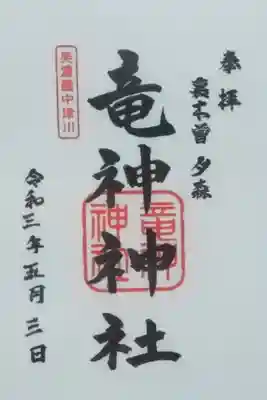 奉拝
裏木曽 夕森
竜神神社
竜神
神社
美濃國中津川
令和三年五月三日